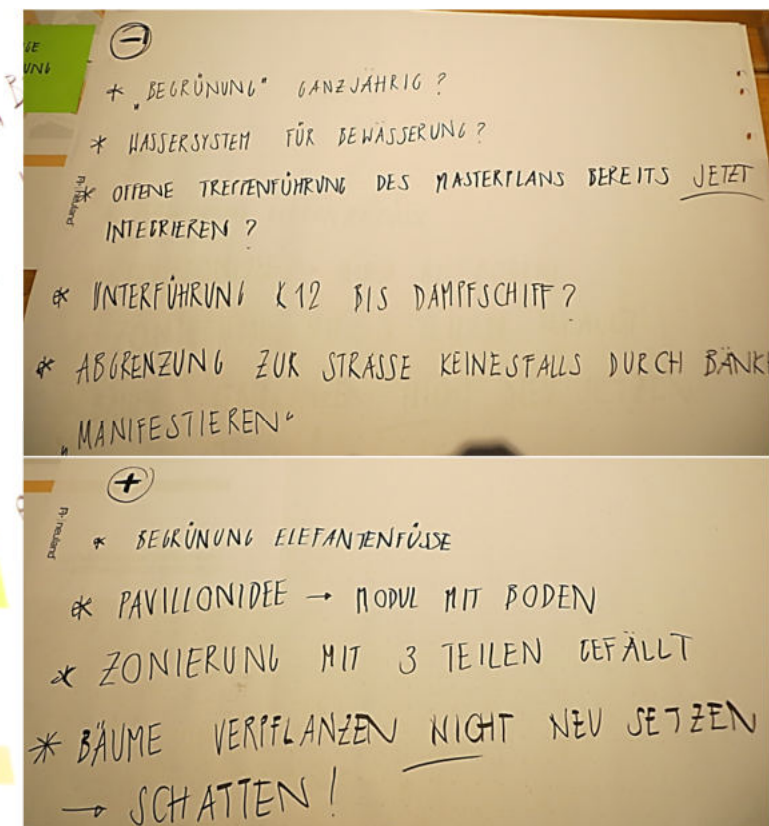 GE
UNG
⊖
* „BEGRÜNUNG“ GANZJÄHRIG?
* WASSERSYSTEM FÜR BEWÄSSERUNG?
* OFFENE TREPPENFÜHRUNG DES MASTERPLANS BEREITS JETZT
INTEGRIEREN?
* UNTERFÜHRUNG K12 BIS DAMPFSCHIFF?
* ABGRENZUNG ZUR STRASSE KEINESFALLS DURCH BÄNKE
„MANIFESTIEREN“
neuland
⊕
* BEGRÜNUNG ELEFANTENFÜSSE
* PAVILLONIDEE → MODUL MIT BODEN
* ZONIERUNG MIT 3 TEILEN GEFÄLLT
* BÄUME VERPFLANZEN NICHT NEU SETZEN
→ SCHATTEN!
neuland